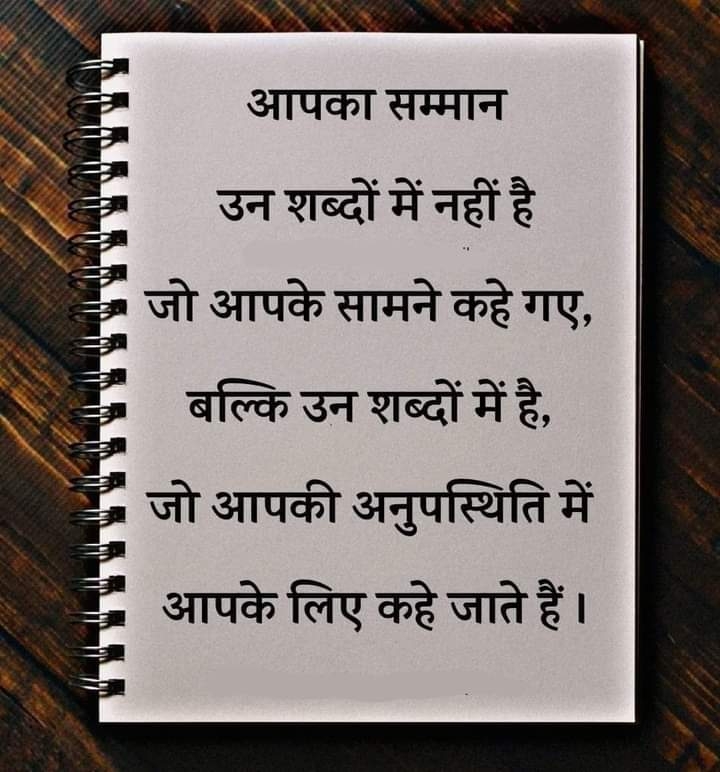 आपका सम्मान
उन शब्दों में नहीं है
जो आपके सामने कहे गए,
बल्कि उन शब्दों में है,
जो आपकी अनुपस्थिति में
आपके लिए कहे जाते हैं।